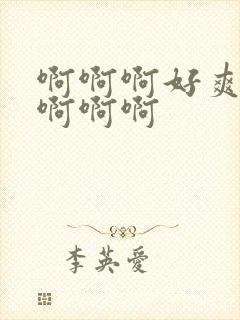 啊啊啊好爽
啊啊啊
李英爱